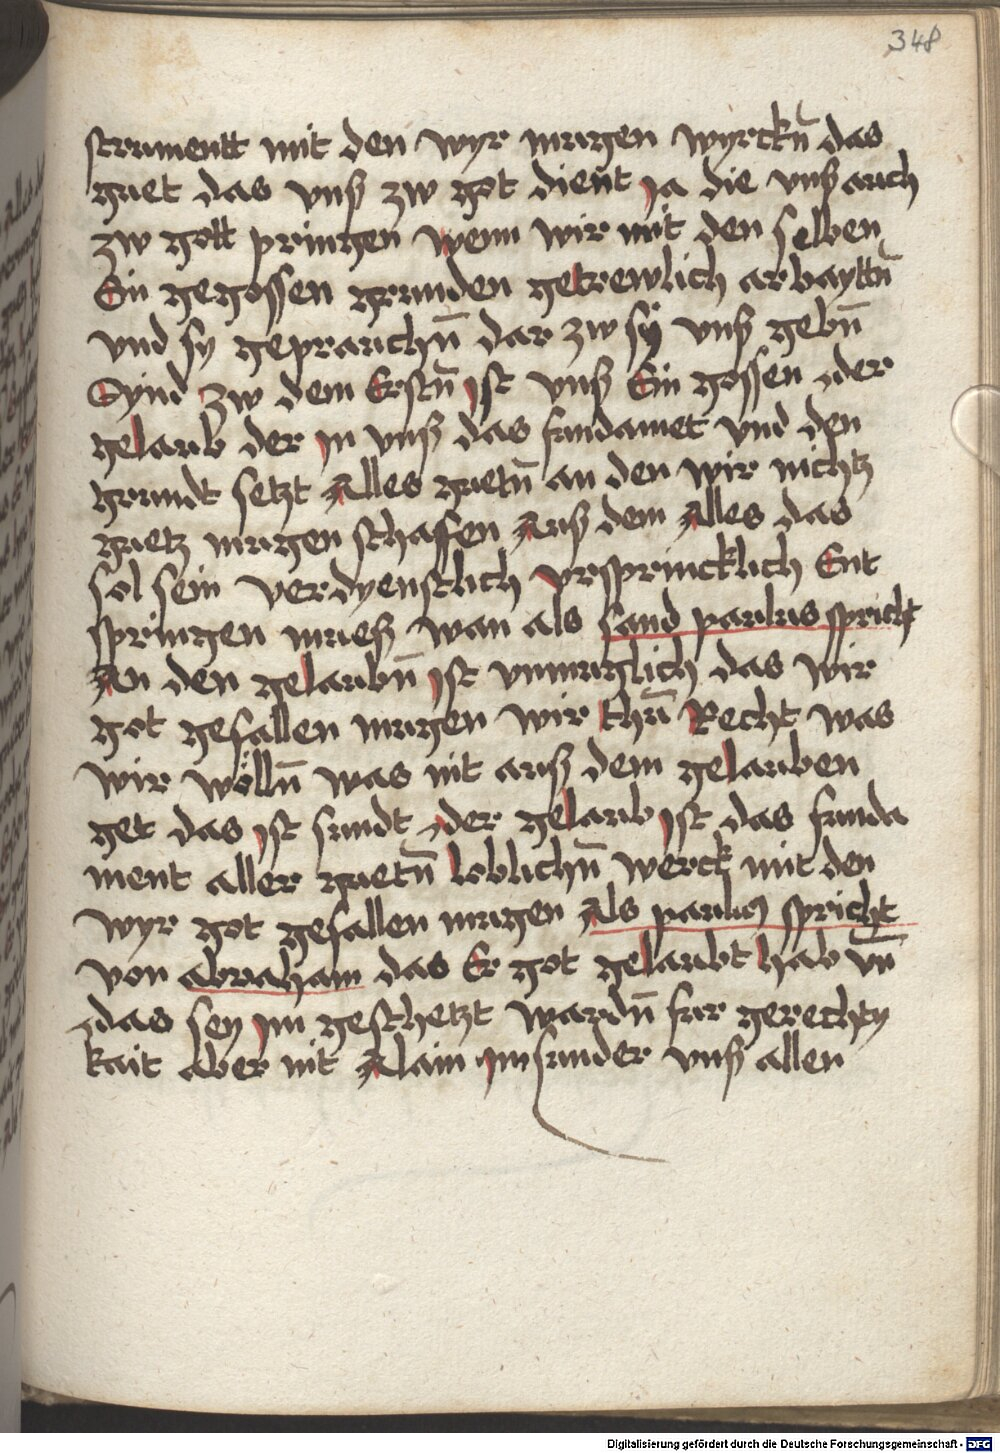 348
strumentt mit den wyr mugen wyrckn̄ das
guet das vnß zw got dient ja die vnß auch
zw gott pringen wenn wir mit den selben
Ein gegossen grunden getrewlich arbayttn̄
vnd sy geprauchn̄ dar zw sÿ vnß gebn̄
Synd zw dem Erstn̄ ist vnß Ein gossen der
gelaub der in vnß das fundamet vnd den
grundt setzt Alles guetn̄ an den wir nichtz
guetz mugen schaffen Auß dem Alles das
sol sein verdyenstlich vrsprincklich Ent
springen mueß wan als sand paulus spricht
An den gelaubn̄ ist vnmuglich das wir
got gefallen mugen wir thun̄ Recht was
wir wölln̄ was nit auß dem gelauben
get das ist sundt der gelaub ist das funda
ment aller guetn̄ loblichn̄ werck mit den
wyr got gefallen mugen Als paulus spricht
von abraham das Er got gelaubt hab vn̄
das sey im geschetzt wardn̄ fur gerechty
kait aber nit Alain im sunder vnß allen
Digitalisierung gefördert durch die Deutsche Forschungsgemeinschaft - DFG